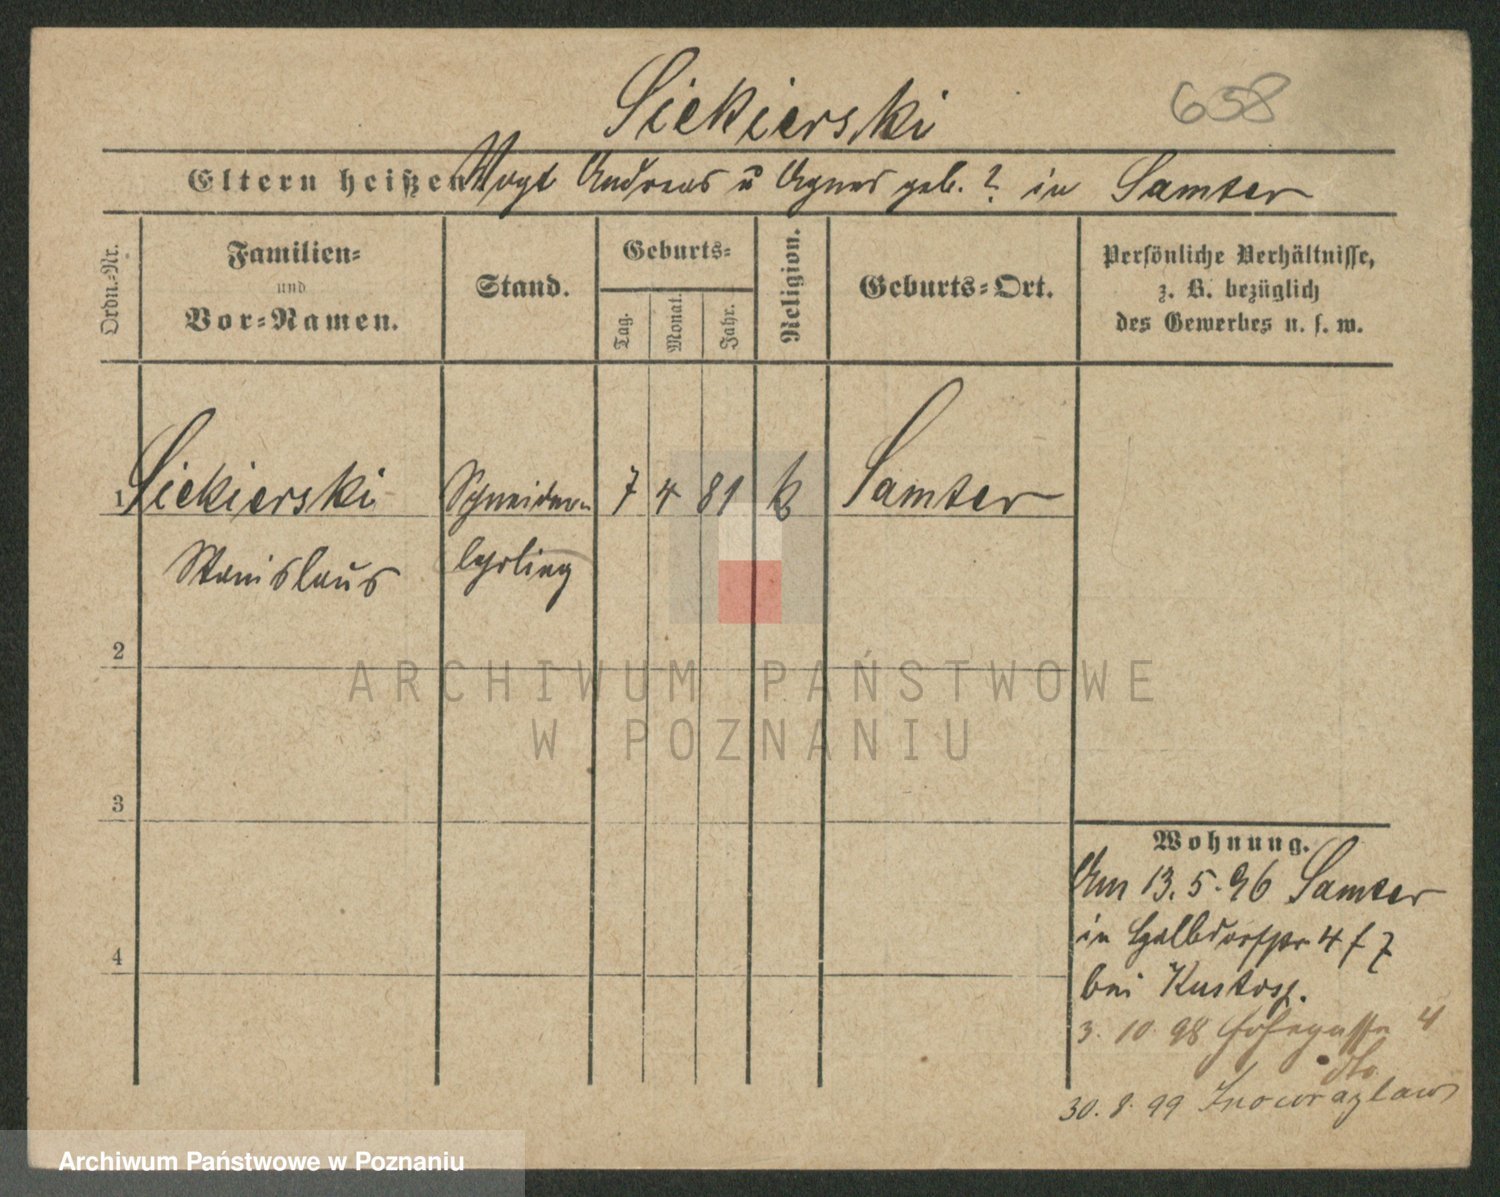 Siekierski
658
Eltern heißen Vogt Andreas u Agnes geb. ? in Samter
Ordn.-Nr.
Familien-
und
Vor-Namen.
Stand.
Geburts-
Tag.
Monat.
Jahr.
Religion.
Geburts-Ort.
Persönliche Verhältnisse,
z. B. bezüglich
des Gewerbes u. s. w.
1 Siekierski Schneider- 7 4 81 k Samter
Stanislaus lehrling
2
3
4
Wohnung.
Am 13.5.96 Samter
in Halbdorfstr 4
bei
3. 10. 98 4
30. 8. 99 Inowrazlaw
ARCHIWUM PAŃSTWOWE
W POZNANIU
Archiwum Państwowe w Poznaniu